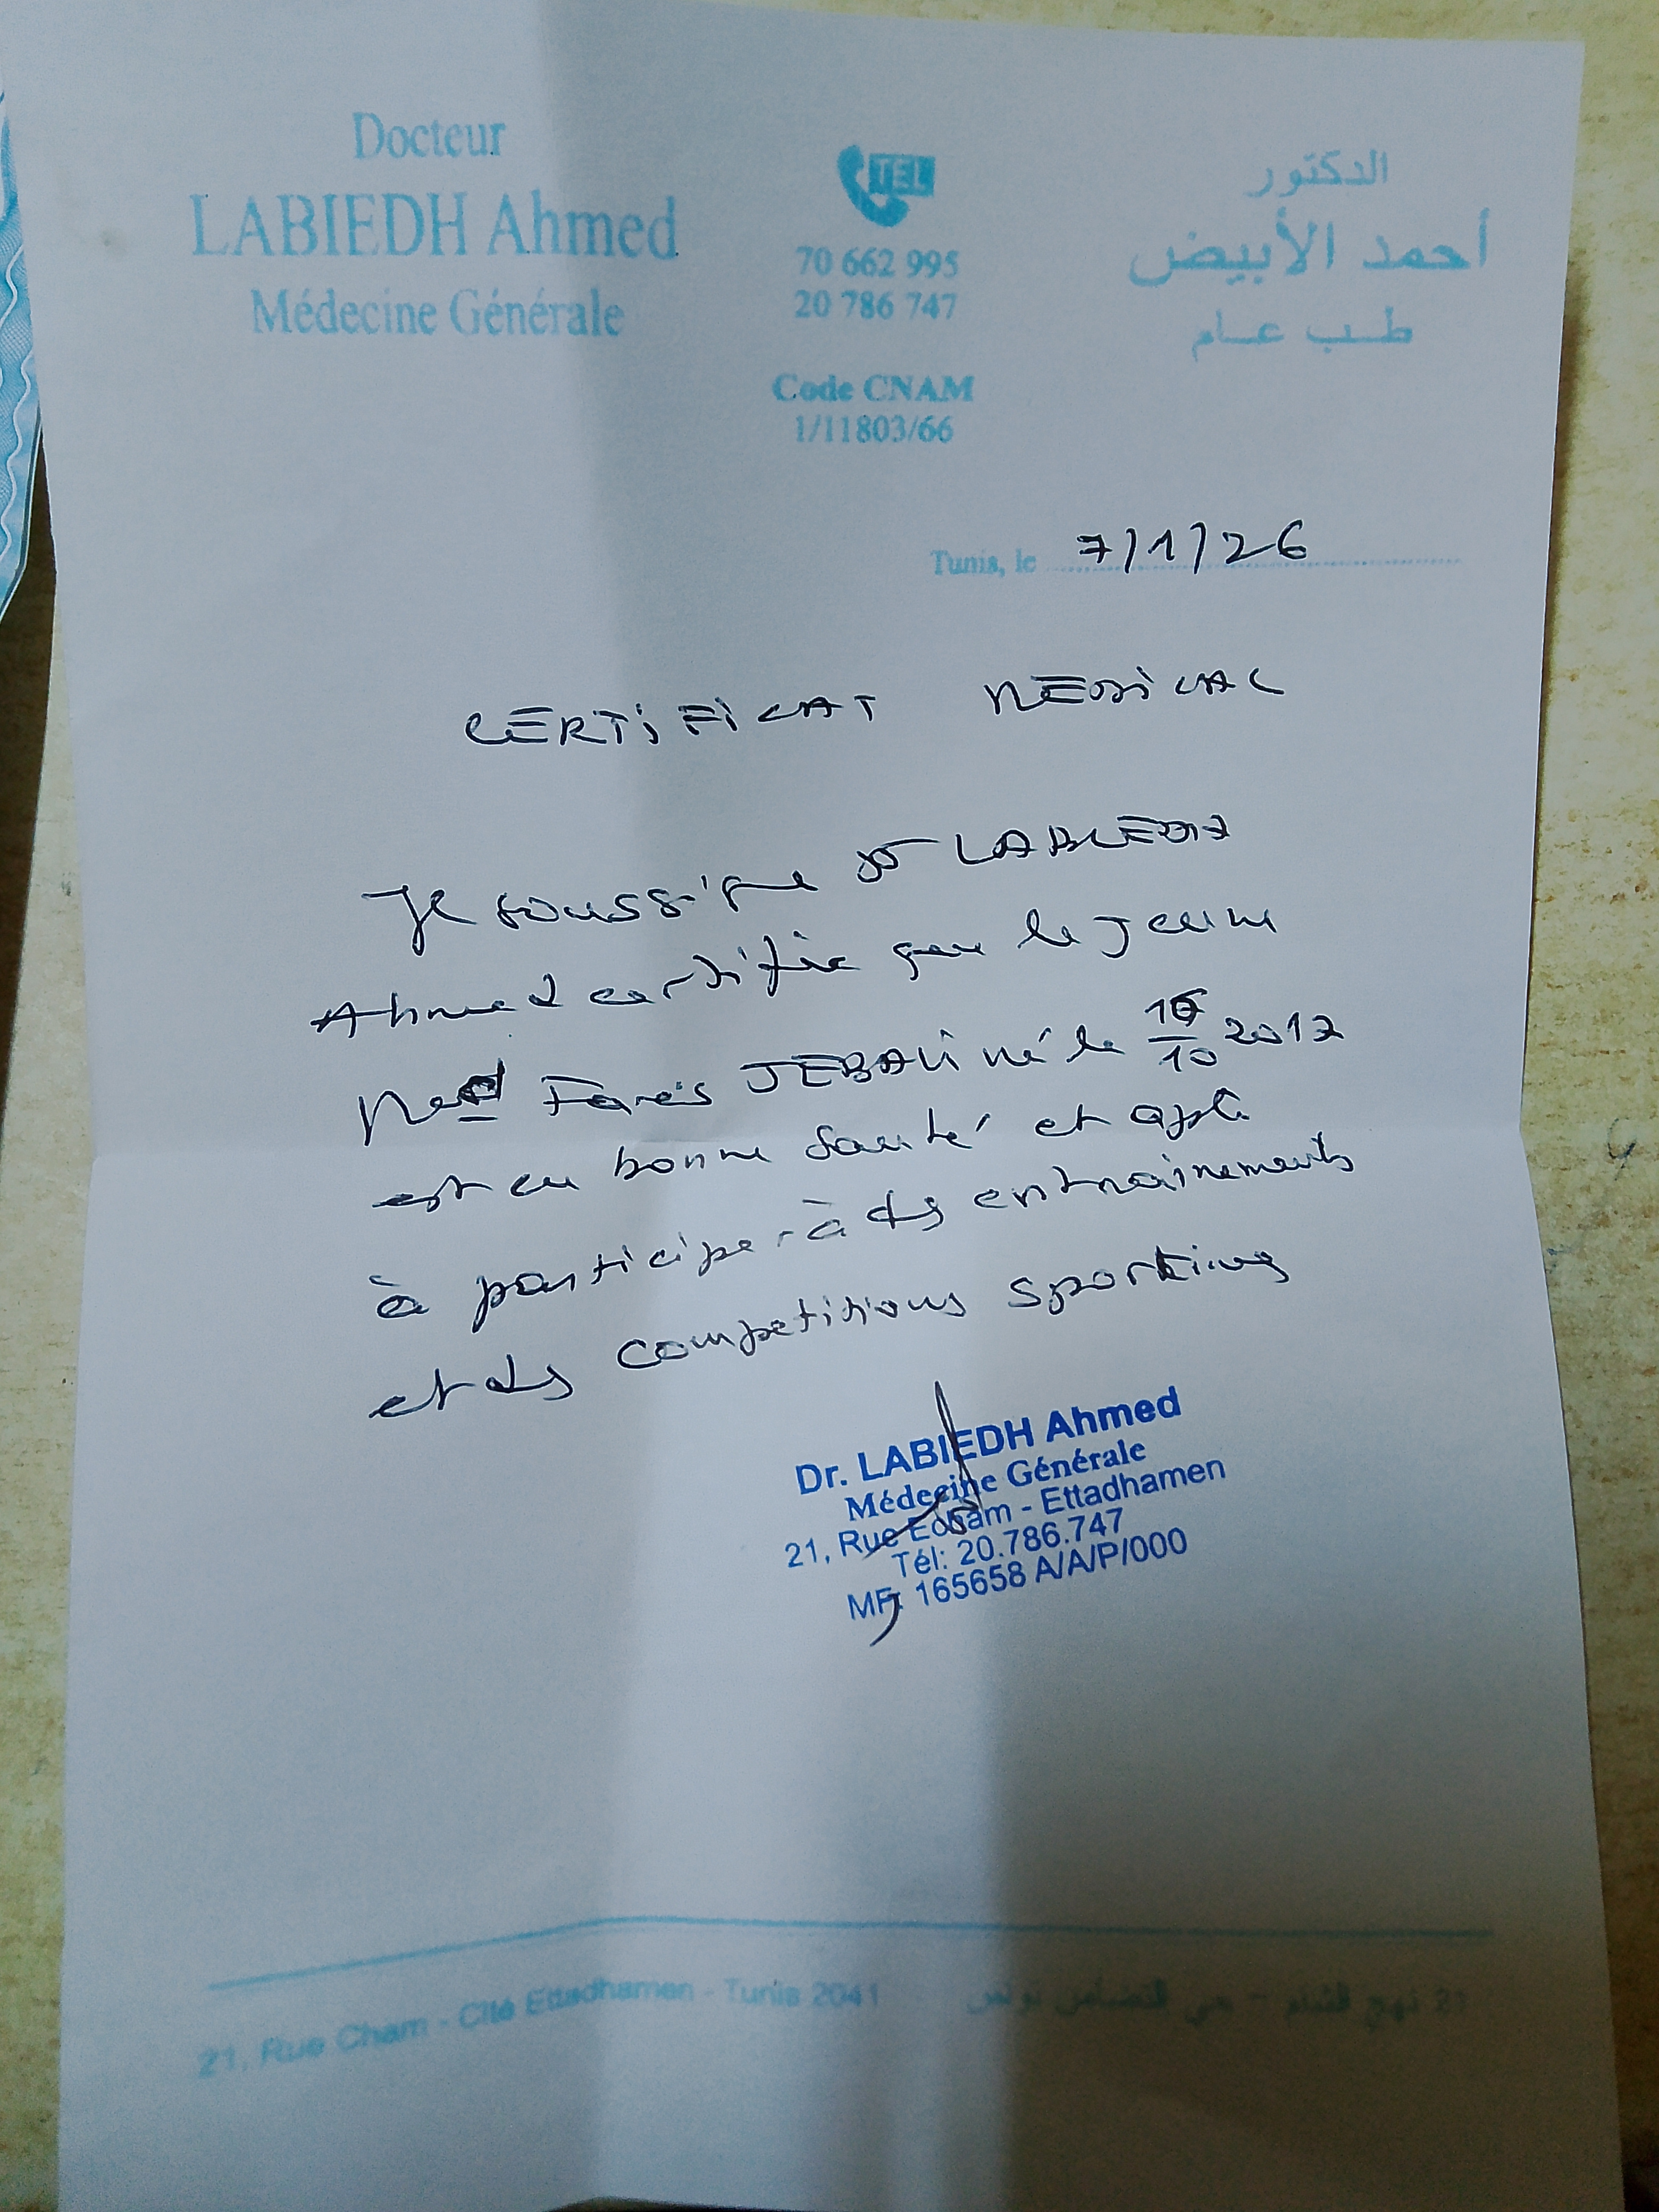 Docteur
LABIEDH Ahmed
Médecine Générale
TEL
70 662 995
20 786 747
Code CNAM
1/11803/66
الدكتور
أحمد الأبيض
طب عام
Tunis, le 7/1/26
CERTIFICAT MEDICAL
Je soussigne Dr LABIEDH
Ahmed certifie que le Jeune
Med Fares JEBALI né le 10 2017
est en bonne santé et apte
à participer à des entrainements
et des competitions sportives
Dr. LABIEDH Ahmed
Médecine Générale
21, Rue Echam - Ettadhamen
Tél: 20.786.747
MF: 165658 A/A/P/000
21, Rue Cham - Cité Ettadhamen - Tunis 2041
21 نهج الشام - حي التضامن تونس